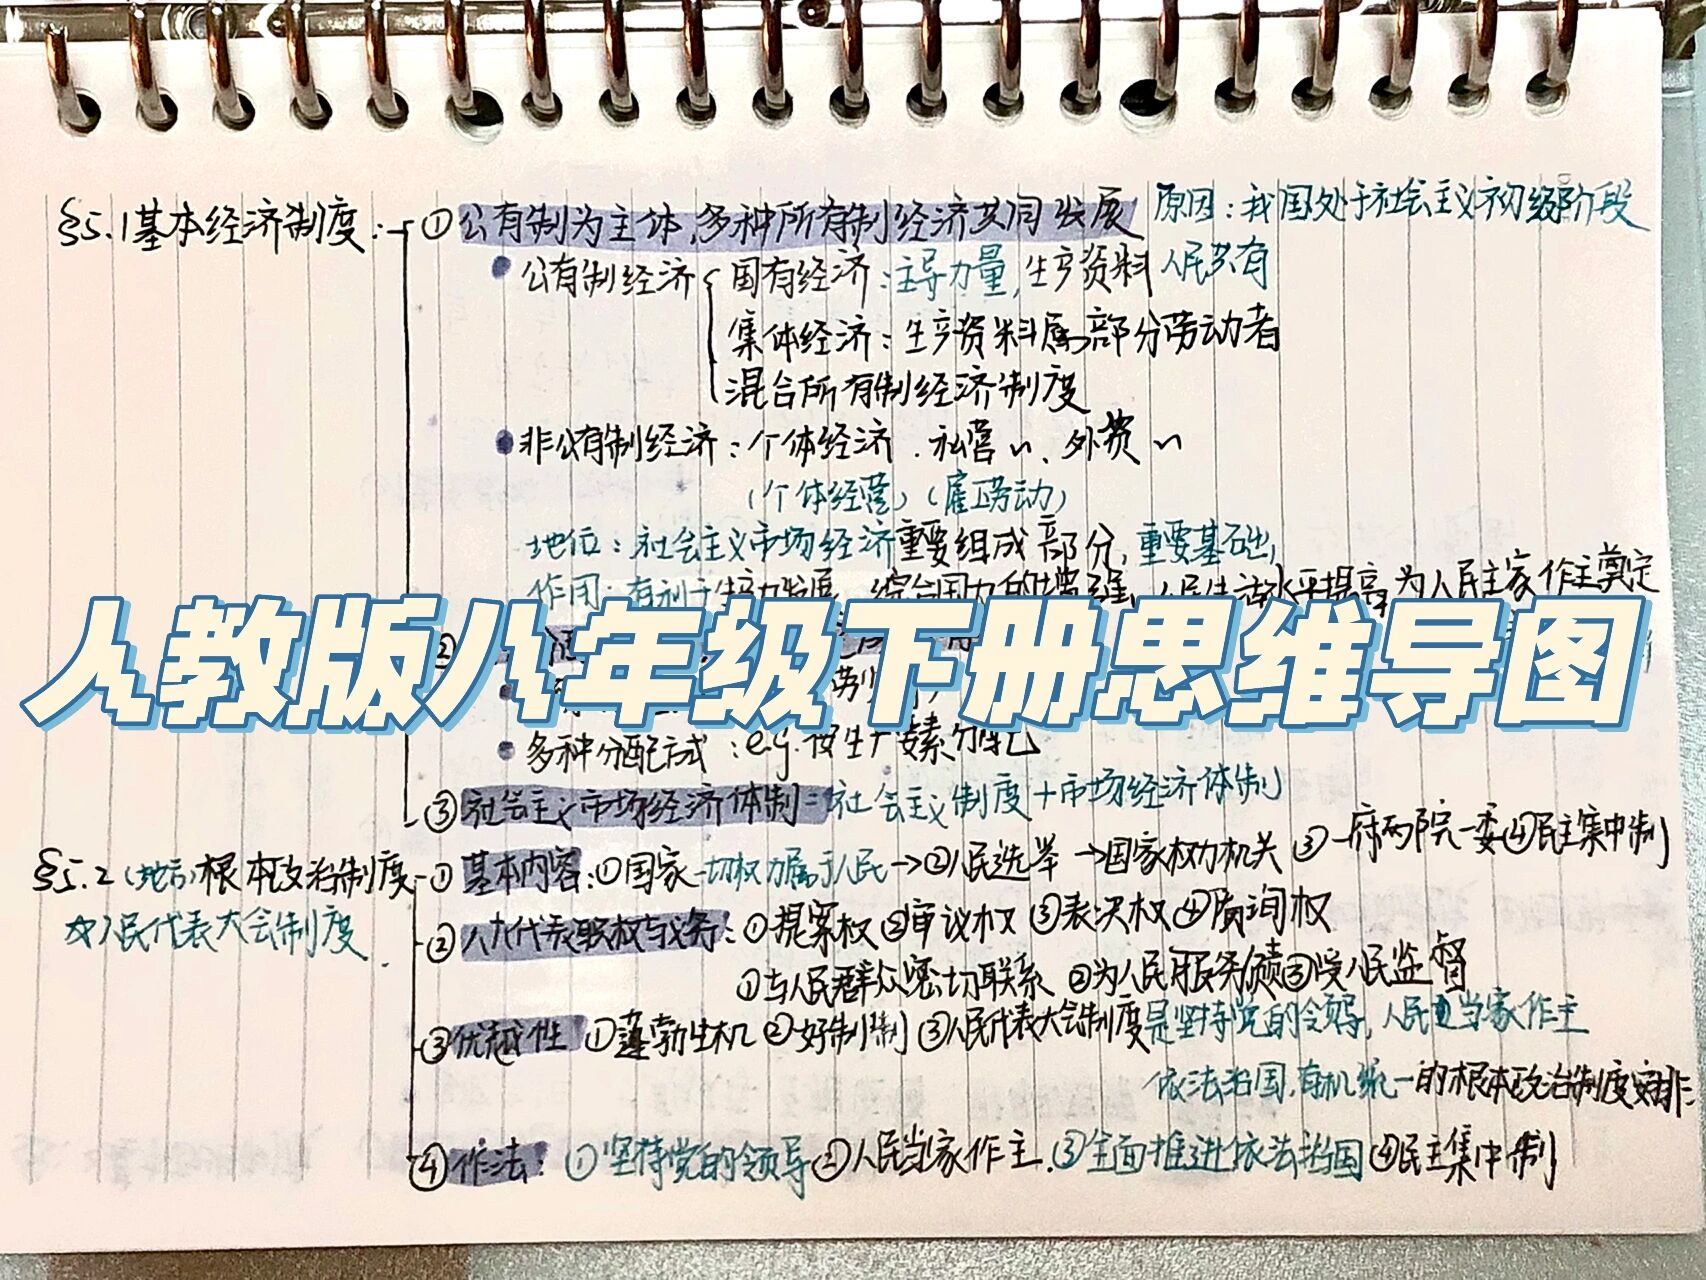 §5.1基本经济制度:
①公有制为主体,多种所有制经济共同发展 原因:我国处于社会主义初级阶段
公有制经济 国有经济:主导力量,生产资料人民共有
集体经济:生产资料属部分劳动者
混合所有制经济制度
非公有制经济:个体经济、私营〃、外资〃
(个体经营)(雇工劳动)
地位:社会主义市场经济重要组成部分,重要基础,
作用:有利于生产力发展 综合国力的增强、人民生活水平提高 为人民主家作主奠定
人教版八年级下册思维导图
多种分配方式:e.g.按生产要素分配
③社会主义市场经济体制=社会主义制度+市场经济体制
§5.2(地方)根本政治制度 ①基本内容:①国家一切权力属于人民→②人民选举→国家权力机关 ③一府两院一委④民主集中制
☆人民代表大会制度
②人大代表职权与义务:①提案权②审议权③表决权④质询权
①与人民群众密切联系 ②为人民服务 ③受人民监督
③优越性 ①蓬勃生机②好制制③人民代表大会制度是坚持党的领导,人民当家作主
依法治国,有机统一的根本政治制度安排.
④作法:①坚持党的领导②人民当家作主.③全面推进依法治国④民主集中制